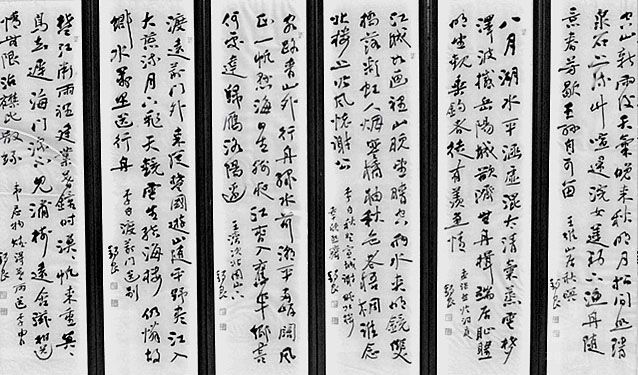 空山新雨后天氣晚来秋明月松间照清
泉石上流竹喧歸浣女蓮動下渔舟随
意春芳歇王孫自可留
王維山居秋暝
八月湖水平涵虚混太清氣蒸雲夢
澤波撼岳陽城欲濟無舟楫端居恥聖
明坐觀垂釣者徒有羡魚情
江城如画裡山晚望晴空兩水夾明鏡雙
橋落彩虹人烟寒橘柚秋色老梧桐誰念
北樓上临风懷謝公
李白秋登宣城謝朓北樓
客路青山外行舟绿水前潮平兩岸闊风
正一帆懸海日生殘夜江春入舊年鄉書
何處達歸雁洛陽邊
王湾次北固山下
渡遠荆门外来從楚國遊山随平野盡江入
大荒流月下飛天鏡雲生结海樓仍憐故
鄉水萬里送行舟
李白渡荆门送别
楚江微雨裡建業暮鐘时漠漠帆来重冥冥
鳥去遲海门深不見浦樹遠含滋相送
情無限沾襟比散絲